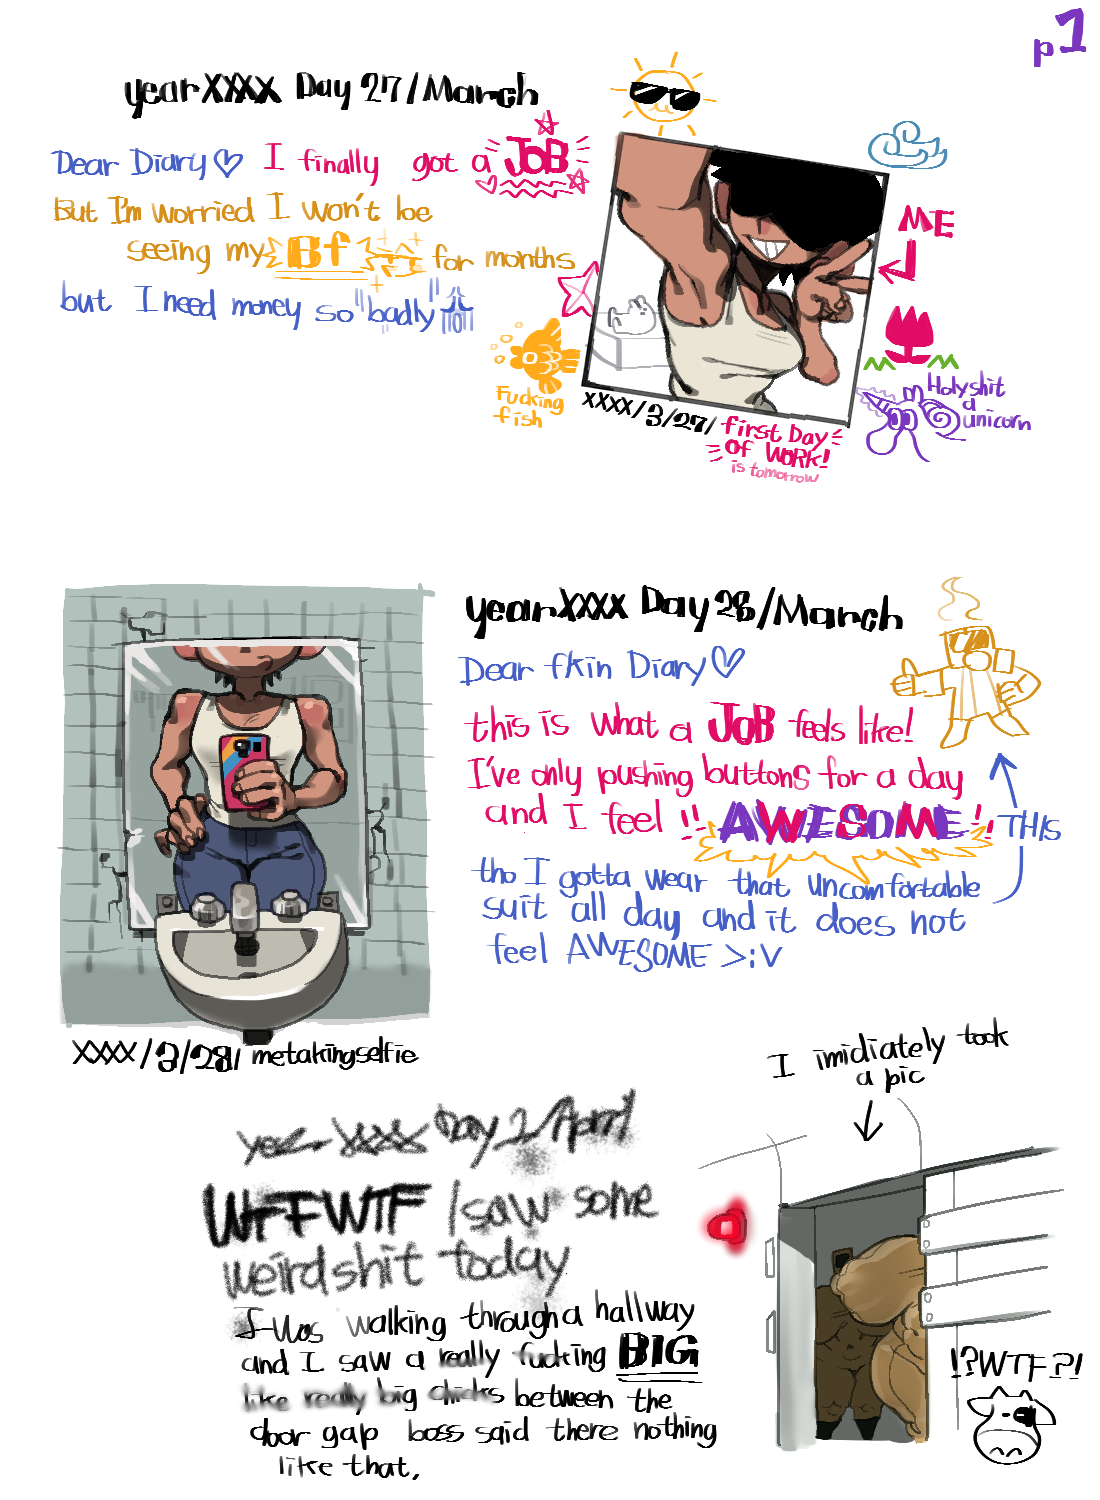 p1
year XXXX Day 27/March
Dear Diary♡ I finally got a JOB
But I'm worried I won't be
seeing my Bf for months
but I need money so "badly"
ME
Fucking
fish
Holy shit
a
unicorn
XXXX/3/27/ first Day
OF WORK!
is tomorrow
year XXXX Day 28/March
Dear fkin Diary♡
this is what a JOB feels like!
I've only pushing buttons for a day
and I feel !! AWESOME!!
THIS
tho I gotta wear that uncomfortable
suit all day and it does not
feel AWESOME >:V
XXXX/3/28/ me taking selfie
I imidiately took
a pic
year XXXX Day 2/April
WTFFWTF I saw some
weird shit today
I was walking through a hallway
and I saw a really fucking BIG
like really big chicks between the
door gap boss said there nothing
like that,
!?WTF?!